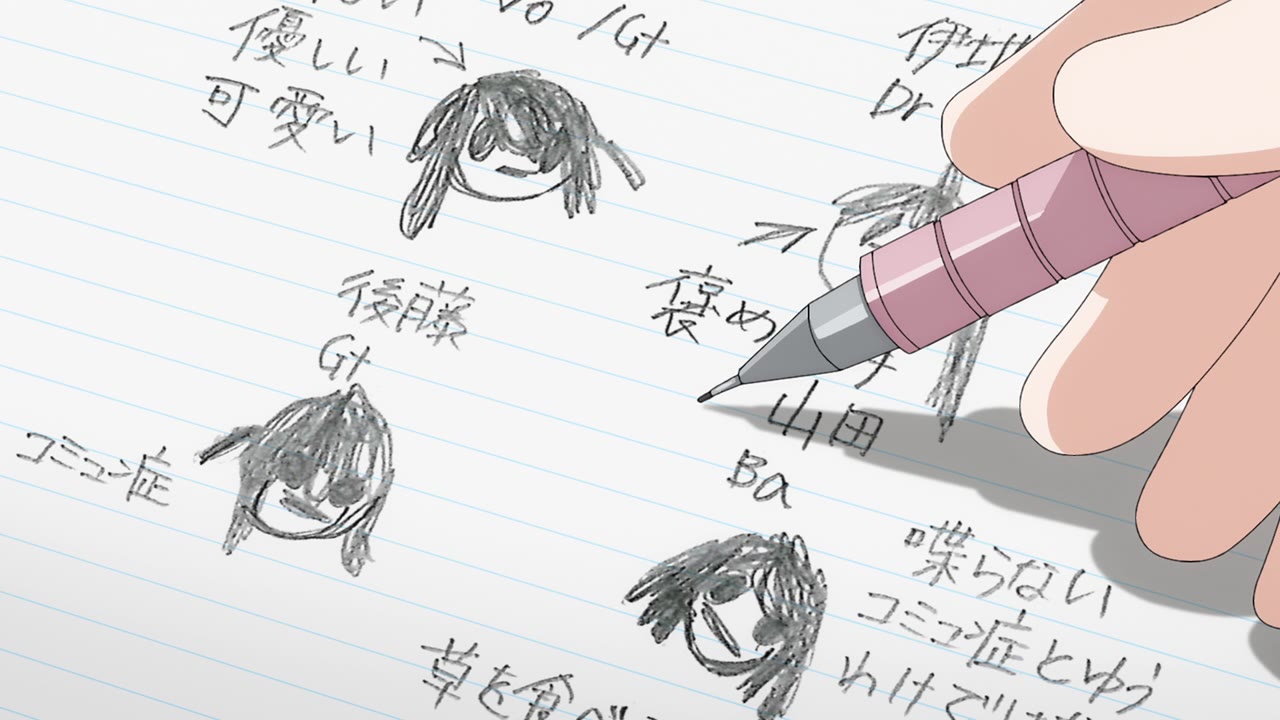 Vo/Gt
優しい
可愛い
伊地
Dr
褒め
後藤
Gt
コミュ症
山田
Ba
喋らない
コミュ症とゆう
わけでは
草を食べ